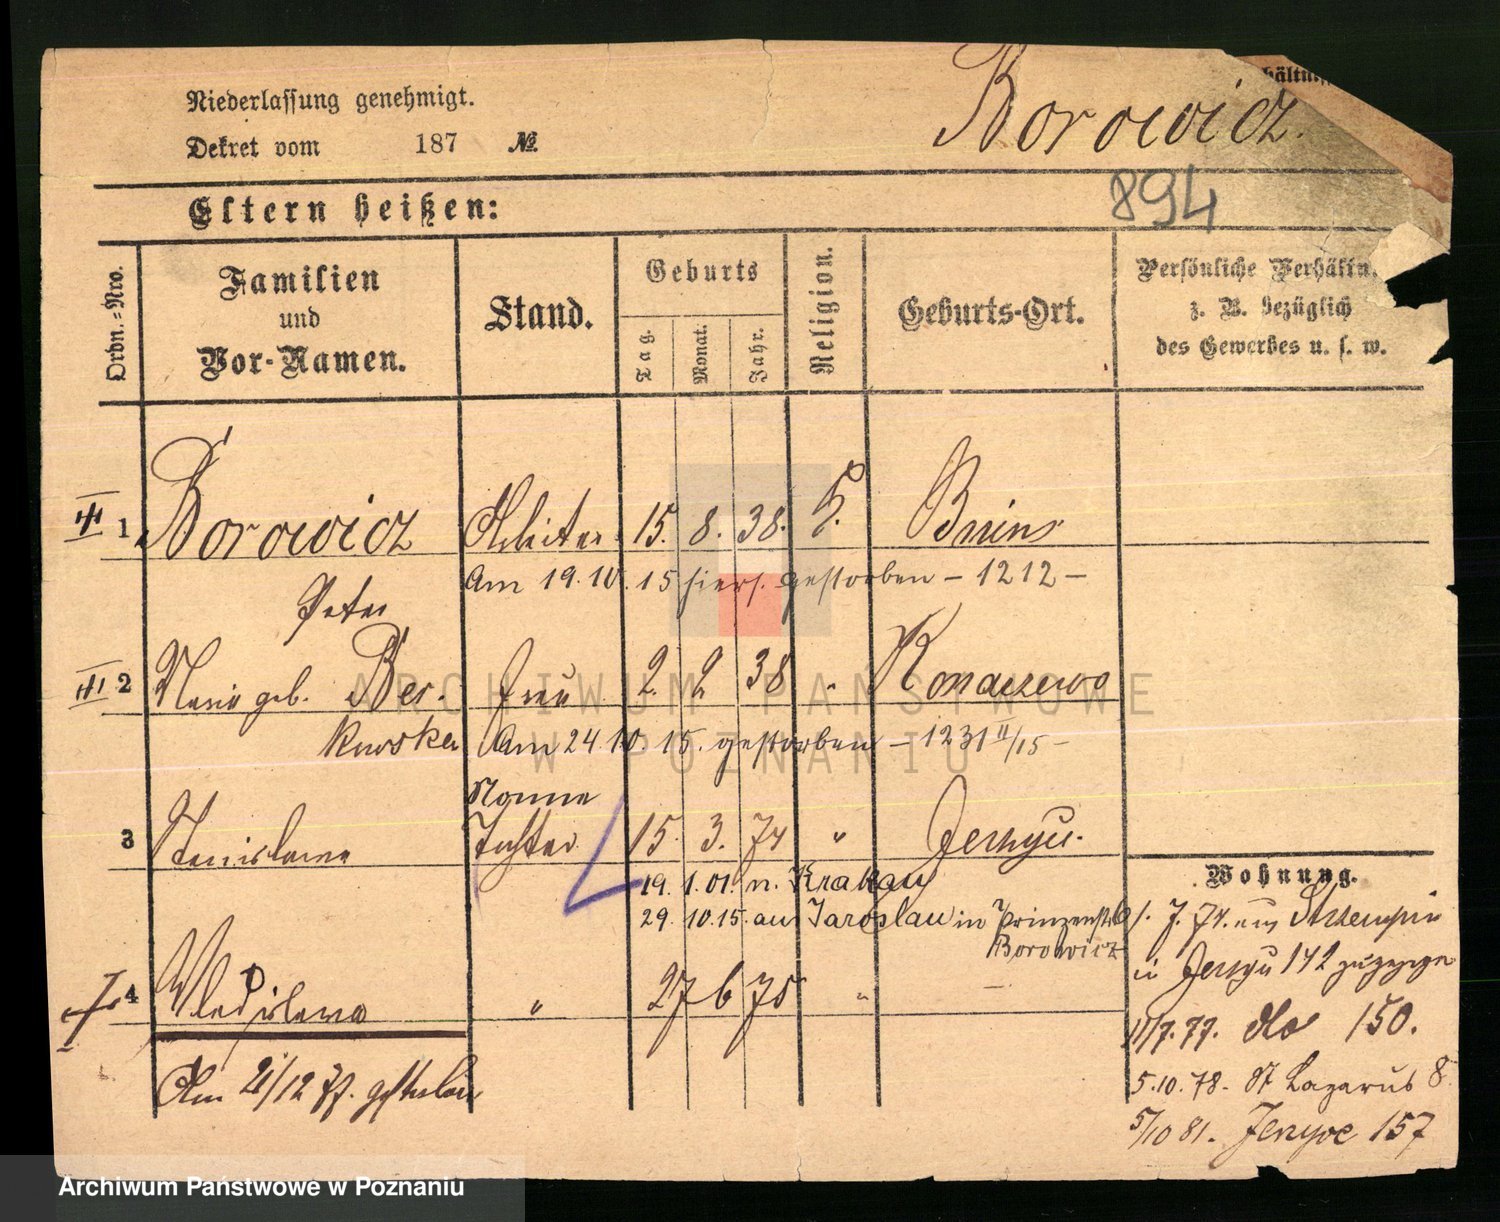 Niederlassung genehmigt.
Borowicz.
Dekret vom 187 №
894
Eltern heißen:
Ordn.-Nro.
Familien
und
Vor-Namen.
Stand.
Geburts
Tag.
Monat.
Jahr.
Religion.
Geburts-Ort.
Persönliche Verhältn.
z. B. bezüglich
des Gewerbes u. s. w.
III 1 Borowicz Arbeiter 15. 8. 38. Bnin
Peter
Am 19.10.15 hiers. gestorben – 1212 –
III 2 Maria geb. Ber- Frau 2. 2 38 " Konarzewo
kowska
Am 24.10.15. gestorben – 1231 II/15 –
Nonne
3 Stanislawa Tochter 15. 3. 74 " Jerzyce.
19. 1.01. n. Krakau
29.10.15 aus Jaroslau in Prinzenstr
Borowicz
4 Wladislawa " 27 6 75 " –
Am 21/12 77. gestorben
Wohnung.
7. 74. aus
in Jerzyce 142 zugezogen
11/7.77. dto 150.
5.10.78. St Lazarus 8
5/10 81. Jerzyce 157
ARCHIWUM PAŃSTWOWE
W POZNANIU
Archiwum Państwowe w Poznaniu